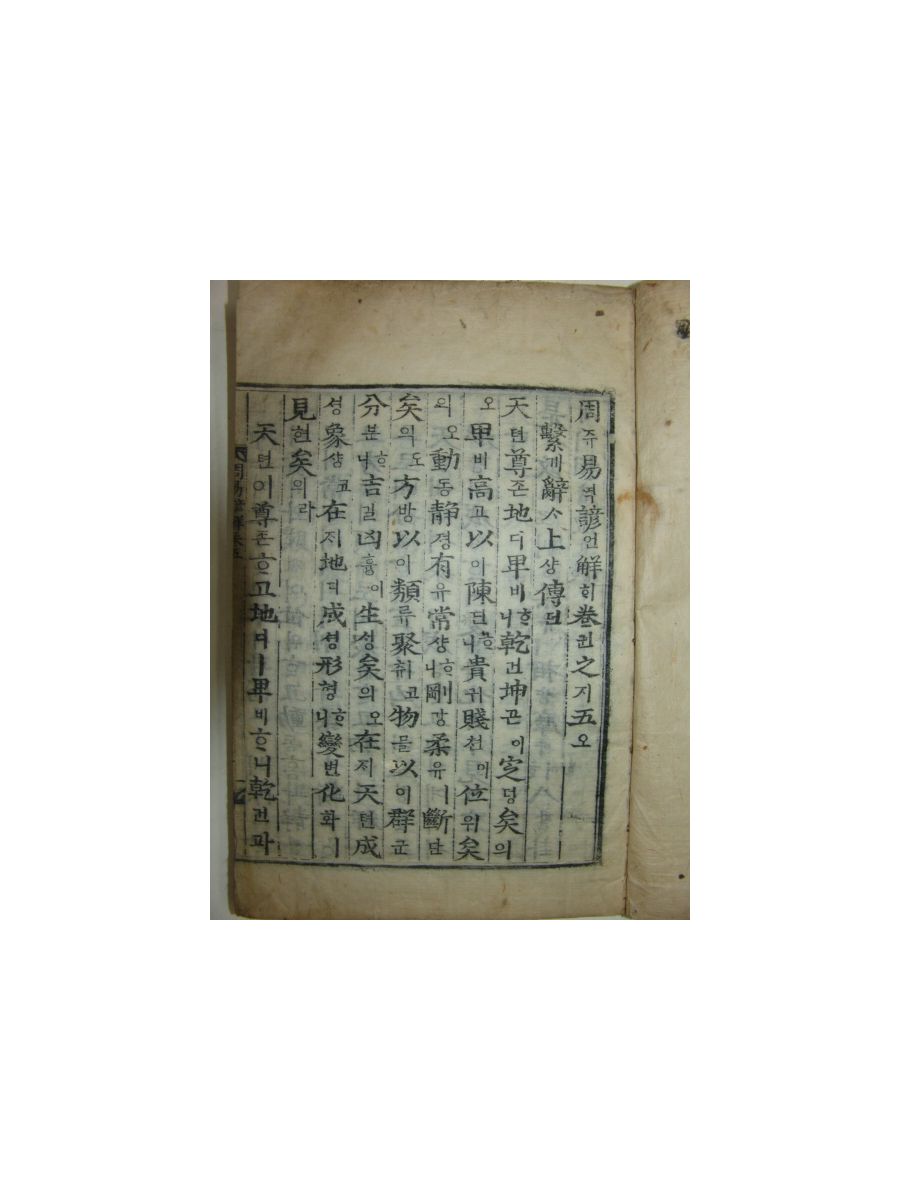 周쥬易역諺언解ᄒᆡ卷권之지五오
繫계辭ᄉᆞ上샹傳뎐
天텬尊존地디卑비ᄒᆞ니乾건坤곤이定뎡矣의
오卑비高고以이陳딘ᄒᆞ니貴귀賤쳔이位위矣
의오動동靜졍有유常샹ᄒᆞ니剛강柔유ㅣ斷단
矣의도方방以이類류聚취코物믈以이群군
分분ᄒᆞ니吉길凶흉이生ᄉᆡᆼ矣의오在ᄌᆡ天텬成
셩象샹코在ᄌᆡ地디成셩形형ᄒᆞ니變변化화ㅣ
見현矣의라
天텬이尊존ᄒᆞ고地디ㅣ卑비ᄒᆞ니乾건과
周易諺解卷五